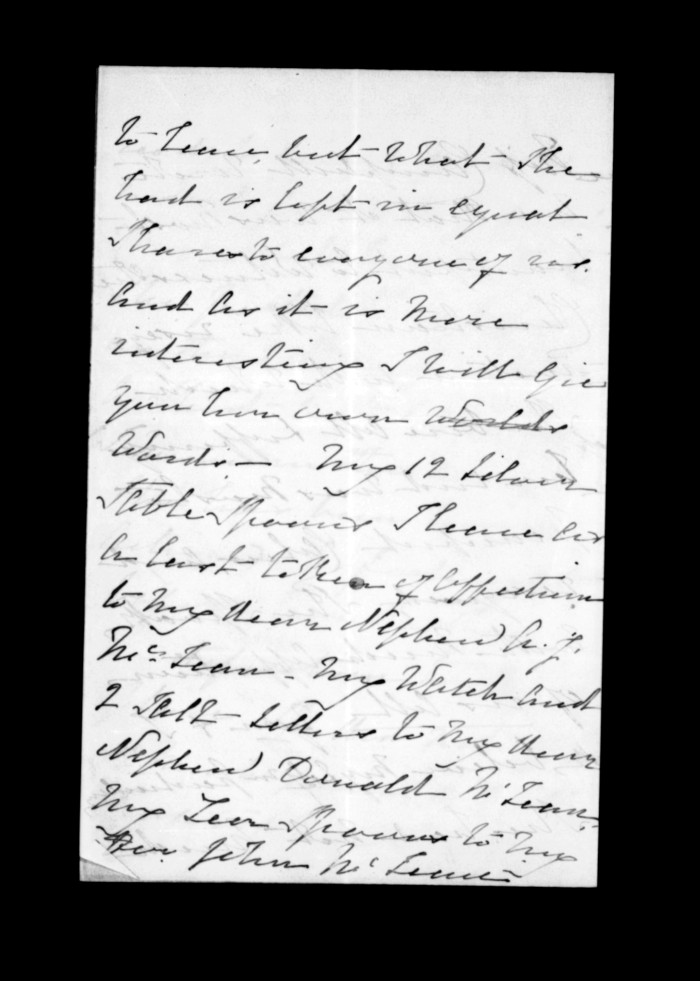 to Leave, but what She
had is left in equal
Shares to everyone of us.
And as it is More
interesting I will Give
you her own Worlds
Words — My 12 Silver
Table Spoons I leave as
a last token of Affection
to My dear Nephew A. J.
McLean - My Watch and
2 Salt Sellers to My dear
Nephew Donald McLean,
My Tea Spoons to My
John McLean